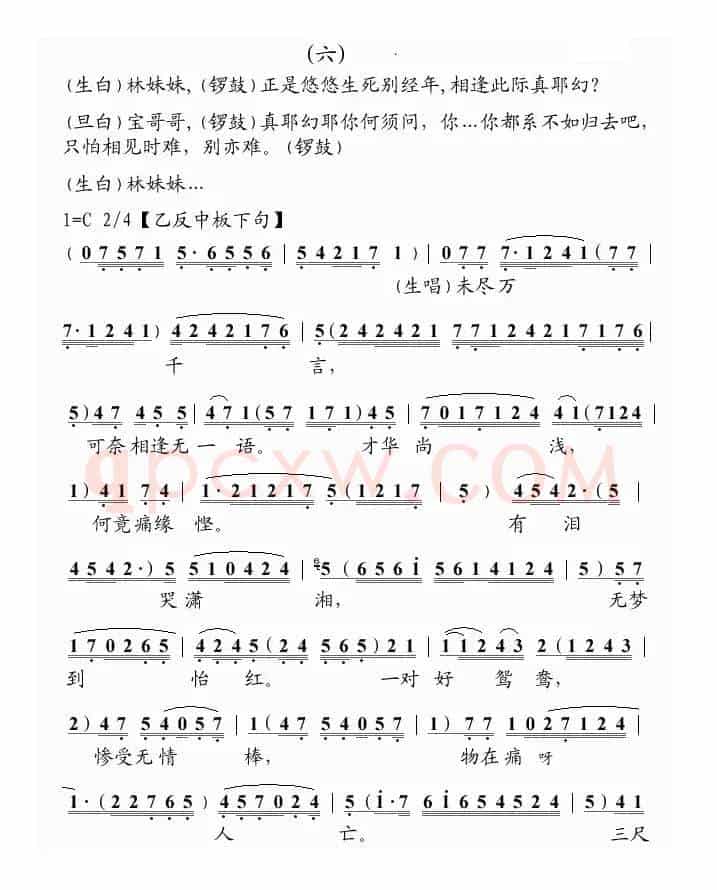 (六)
(生白)林妹妹,(锣鼓)正是悠悠生死别经年,相逢此际真耶幻?
(旦白)宝哥哥,(锣鼓)真耶幻耶你何须问，你...你都系不如归去吧，
只怕相见时难，别亦难。(锣鼓)
(生白)林妹妹...
1=C 2/4【乙反中板下句】
(07571 5·65556 | 542171 1) | 077 7·1241(77 |
(生唱)未尽万
7·1241) 4242176 | 5(242421 77124217176 |
千 言，
5)47 455 | 471(57 171)45 | 7017124 41(7124 |
可奈相逢无一语。 才华尚 浅，
1)41 74 | 1·212175(1217 | 5) 4542·(5 |
何竟痛缘 悭。 有 泪
4542·)5 510424 | 5(6561 5614124 | 5)57 |
哭潇 湘， 无梦
170265 | 4245(24 565)21 | 11243 2(1243 |
到 怡 红。 一对 好 鸳 鸯，
2)47 54057 | 1(47 54057 | 1)77 1027124 |
惨受无情 棒， 物在痛呀
1·(22765) 457024 | 5(1·7 61654524 | 5)41
人 亡。 三尺
qpcxw.com